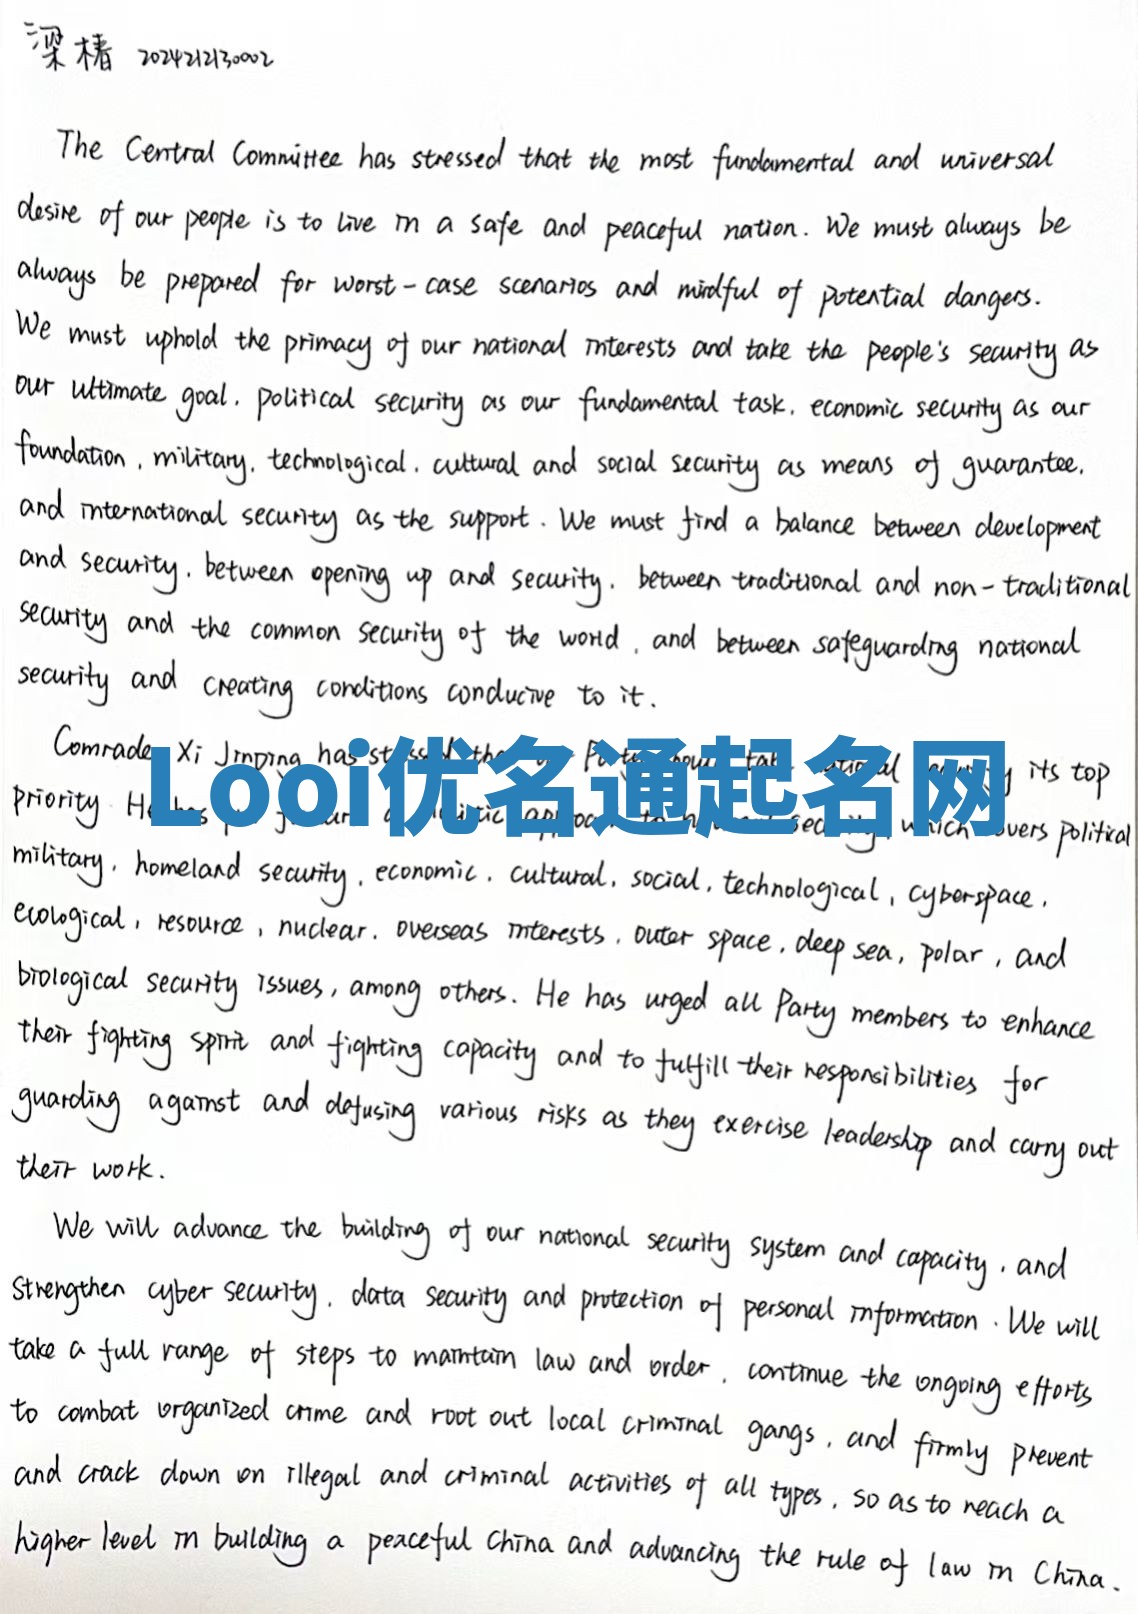 梁椿 2024212130002
The Central Committee has stressed that the most fundamental and universal
desire of our people is to live in a safe and peaceful nation. We must always be
always be prepared for worst-case scenarios and mindful of potential dangers.
We must uphold the primacy of our national interests and take the people's security as
our ultimate goal, political security as our fundamental task, economic security as our
foundation, military, technological, cultural and social security as means of guarantee,
and international security as the support. We must find a balance between development
and security, between opening up and security, between traditional and non-traditional
security and the common security of the world, and between safeguarding national
security and creating conditions conducive to it.
Comrade Xi Jinping has its top
Looi优名通起名网
priority. He which political
military, homeland security, economic, cultural, social, technological, cyberspace,
ecological, resource, nuclear, overseas interests, outer space, deep sea, polar, and
biological security issues, among others. He has urged all Party members to enhance
their fighting spirit and fighting capacity and to fulfill their responsibilities for
guarding against and defusing various risks as they exercise leadership and carry out
their work.
We will advance the building of our national security system and capacity, and
strengthen cyber security, data security and protection of personal information. We will
take a full range of steps to maintain law and order, continue the ongoing efforts
to combat organized crime and root out local criminal gangs, and firmly prevent
and crack down on illegal and criminal activities of all types, so as to reach a
higher level in building a peaceful China and advancing the rule of law in China.